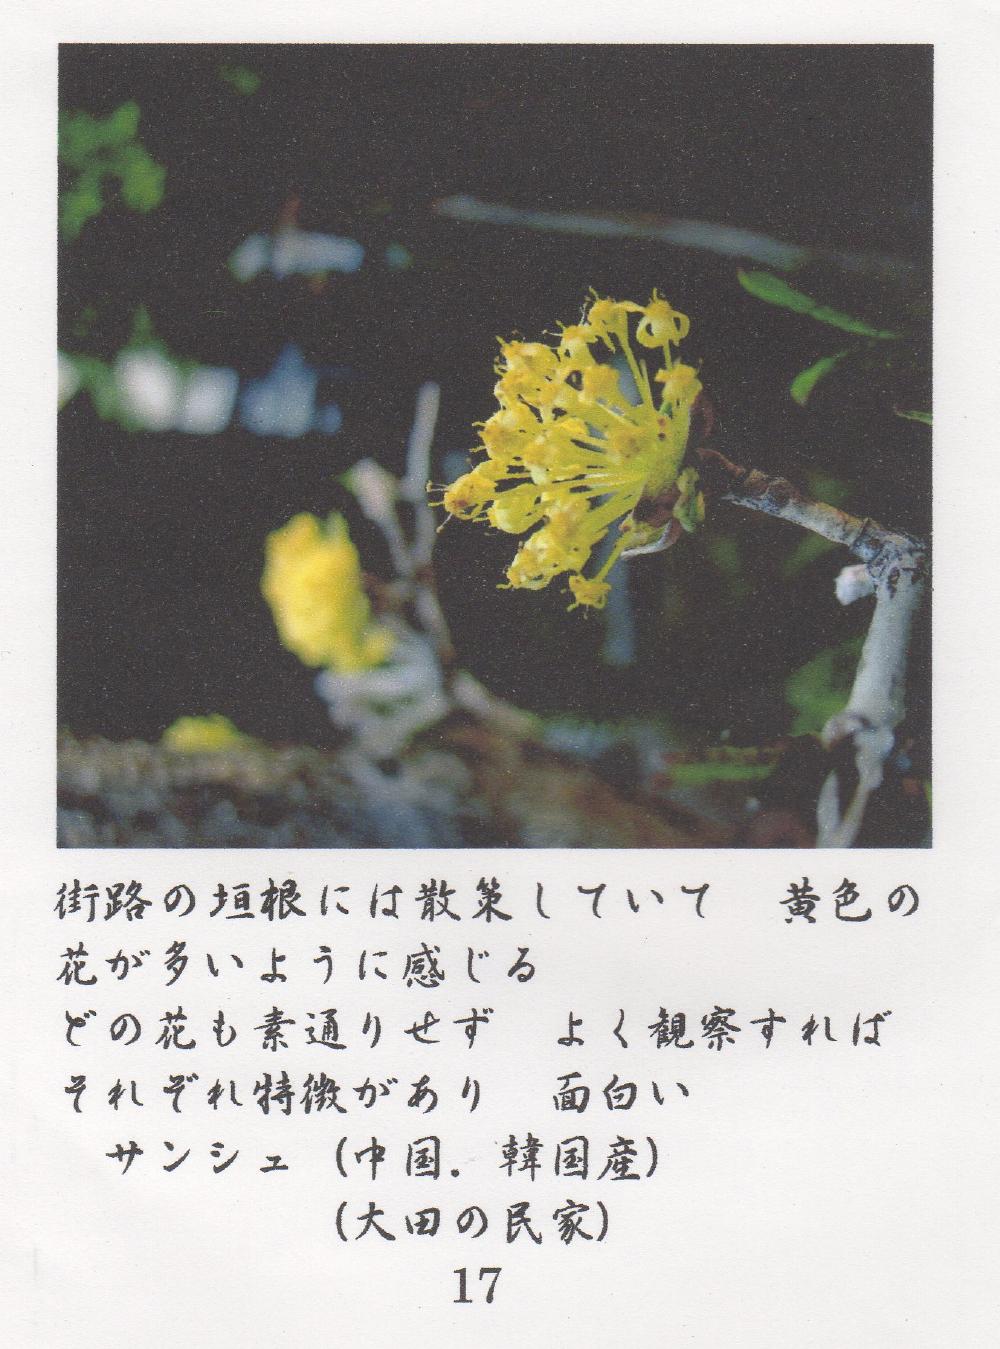 街路の垣根には散策していて　黄色の
花が多いように感じる
どの花も素通りせず　よく観察すれば
それぞれ特徴があり　面白い
サンシュ（中国．韓国産）
（大田の民家）
17